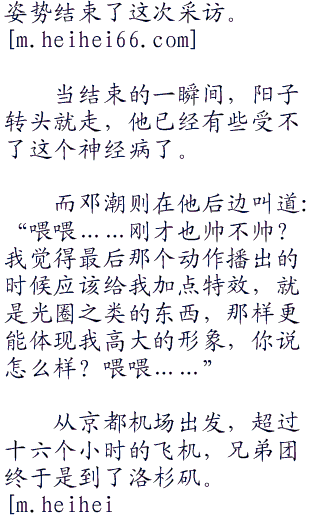 姿势结束了这次采访。
[m.heihei66.com]
当结束的一瞬间，阳子
转头就走，他已经有些受不
了这个神经病了。
而邓潮则在他后边叫道：
“喂喂……刚才也帅不帅？
我觉得最后那个动作播出的
时候应该给我加点特效，就
是光圈之类的东西，那样更
能体现我高大的形象，你说
怎么样？喂喂……”
从京都机场出发，超过
十六个小时的飞机，兄弟团
终于是到了洛杉矶。
[m.heihei